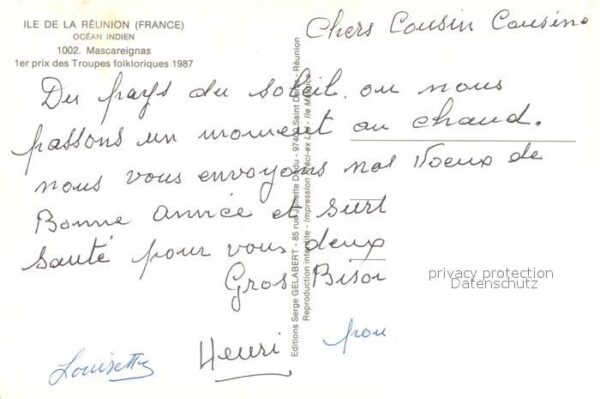 ILE DE LA RÉUNION (FRANCE)
OCÉAN INDIEN
1002. Mascareignas
1er prix des Troupes folkloriques 1987
Chers Cousin Cousine
Du pays du soleil, ou nous
passons un moment au chaud.
nous vous envoyons nos Voeux de
Bonne année et surt
santé pour vous deux
Gros Bisou
Louisette
Henri
pou
Editions Serge GELABERT - 85 rue Juliette Dodu - 97400 Saint Denis - Réunion
Reproduction interdite - Impression Préci-ex Ltd - Ile Maurice
privacy protection
Datenschutz